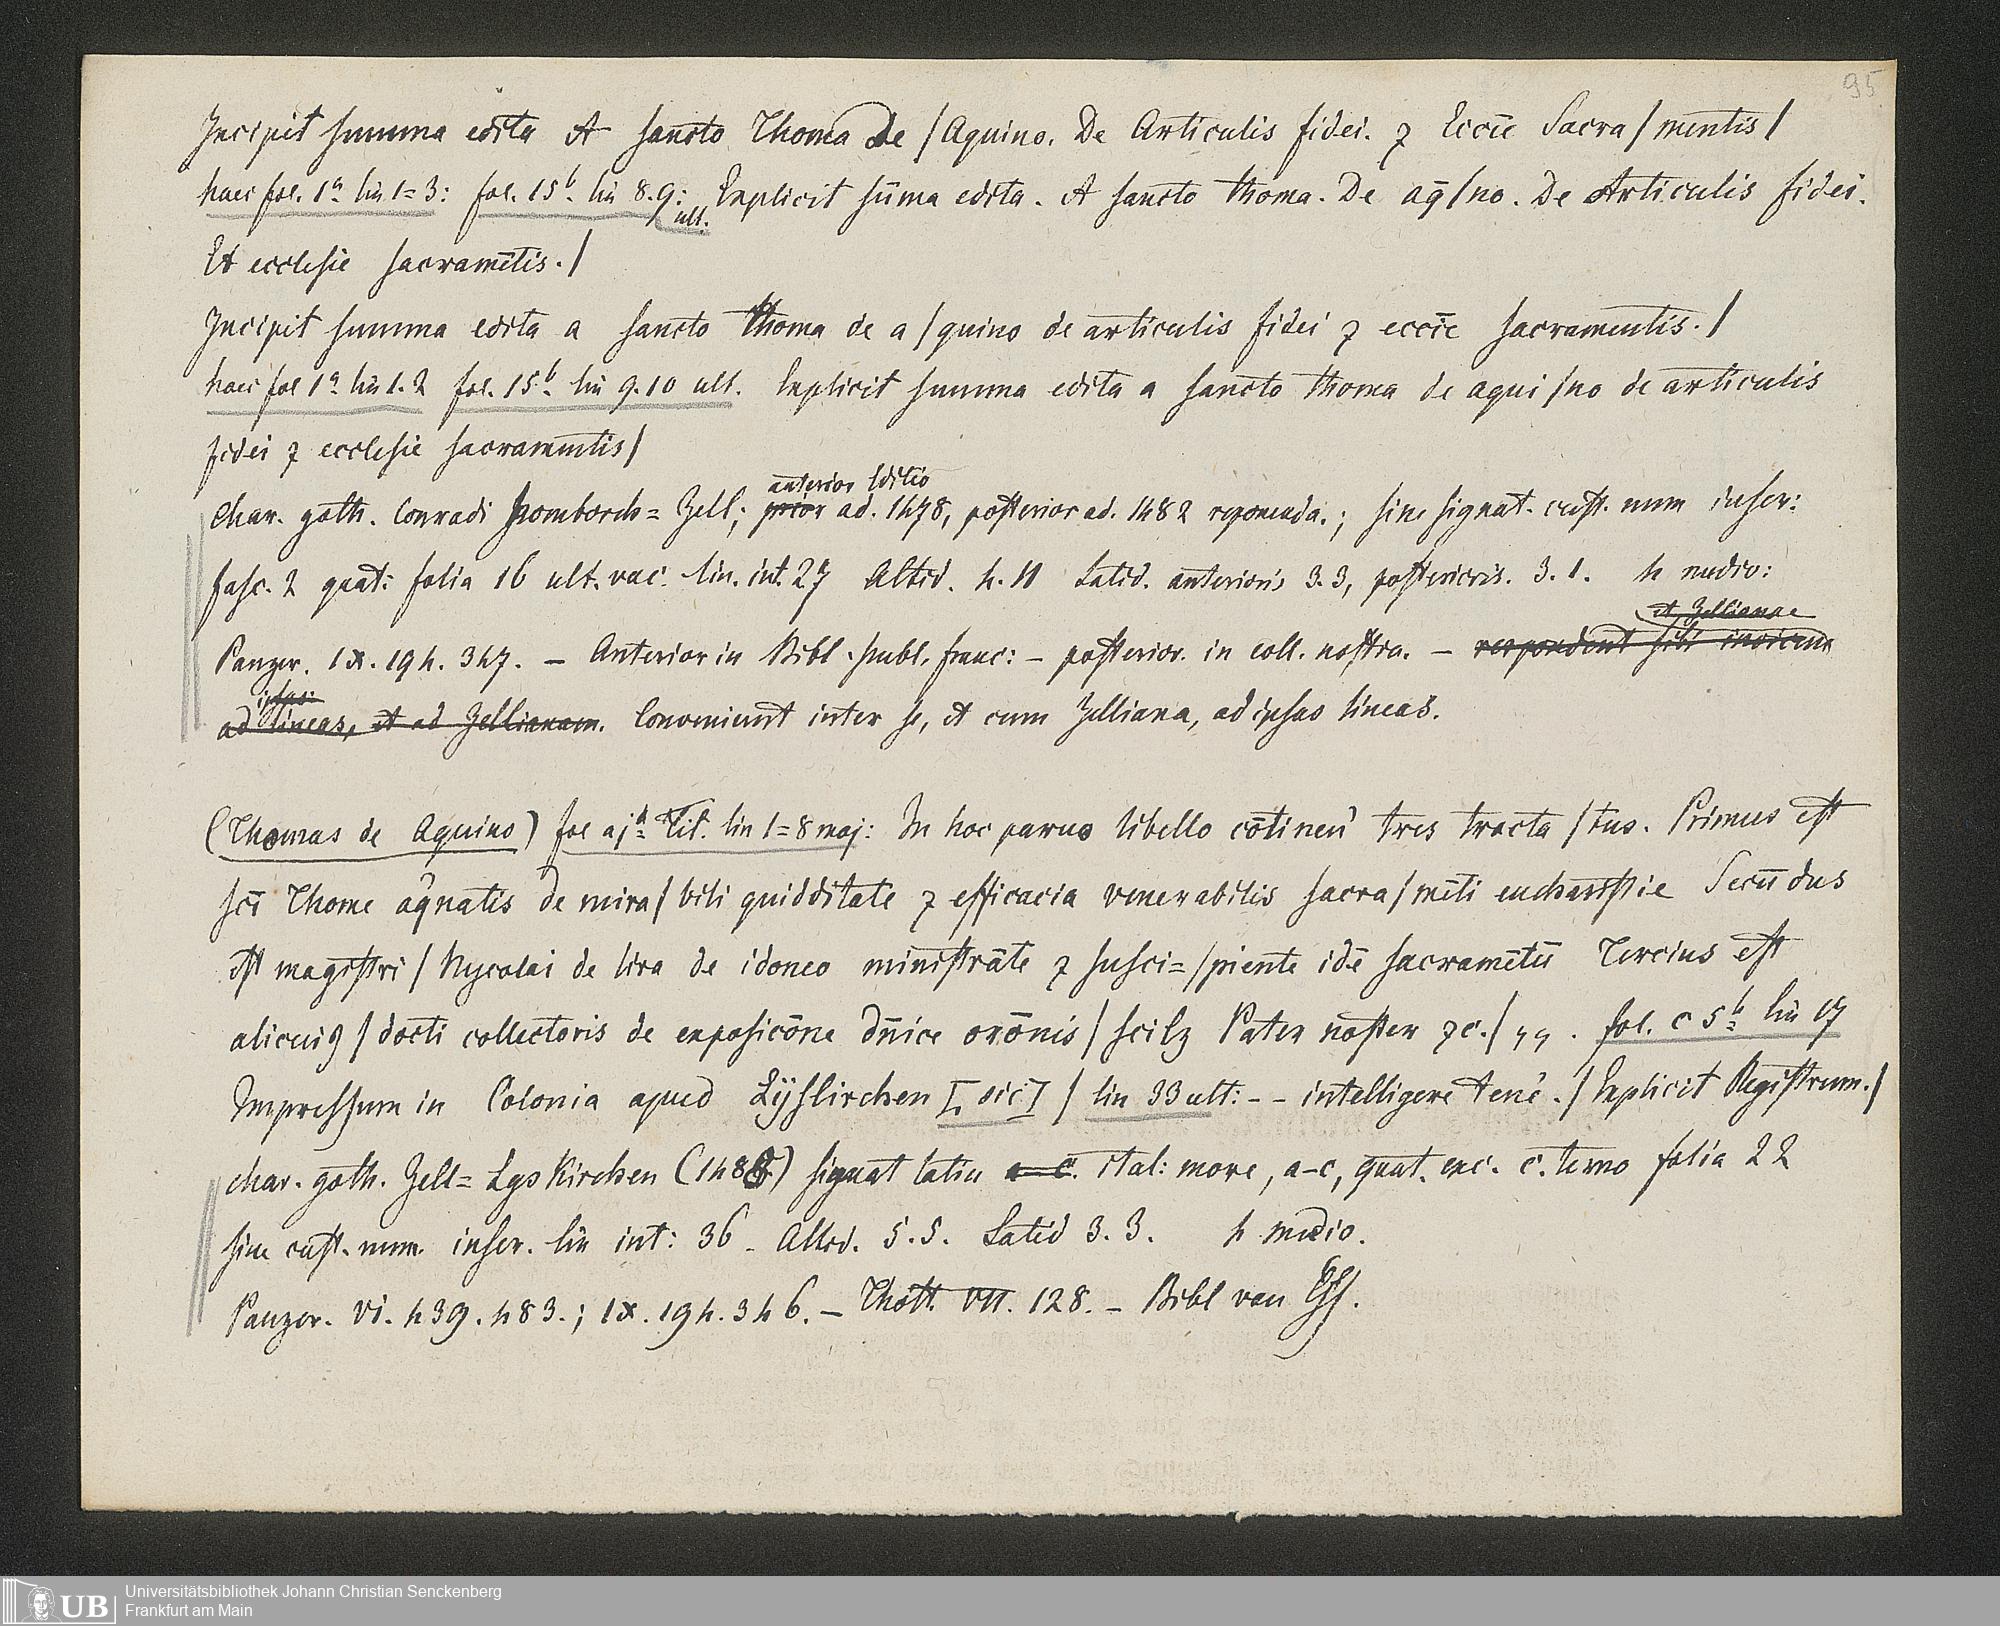 95
Incipit summa edita A sancto Thoma De / Aquino. De Articulis fidei. ⁊ Eccīe Sacra / mentis /
haec fol. 1ª lin 1=3: fol. 15ᵇ lin 8.9: ult. Explicit sūma edita. A sancto thoma. De aq̄ / no. De Articulis fidei.
Et ecclesie sacramētis. /
Incipit summa edita a sancto thoma de a / quino de articulis fidei ⁊ eccīe sacramentis. /
haec fol 1ª lin 1.2 fol. 15ᵇ lin 9.10 ult. Explicit summa edita a sancto thoma de aqui / no de articulis
fidei ⁊ ecclesie sacramentis /
anterior Editio
char. goth. Conradi Homborch = Zell; prior ad. 1478, posterior ad. 1482 reponenda.; sine signat. cust. num inscr:
fasc. 2 quat: folia 16 ult. vac. lin. int. 27 Altid. 4.11 Latid. anterioris 3.3, posterioris. 3.1. 4 medio:
et Zellianae
Panzer. IX. 194. 347. – Anterior in Bibl. publ. franc: – posterior. in coll. nostra. – respondent sibi invicem
ipsas
ad lineas, et ad Zellianam. Conveniunt inter se, et cum Zelliana, ad ipsas lineas.
(Thomas de Aquino) fol ajª Tit. lin 1=8 maj: In hoc paruo libello cōtinenꝰ tres tracta / tus. Primus est
scī Thome aq̄natis de mira / bili quidditate ⁊ efficacia venerabilis sacra / mēti eucharistie Secūdus
est magistri / Nycolai de lira de idoneo ministrāte ⁊ susci= / piente idē sacramētū Tercius est
alicuiꝯ / docti collectoris de exposicōne dn̄ice orōnis / scilꝫ Pater noster ⁊c. / ,, . fol. c 5ᵇ lin 17
Impressum in Colonia apud Lÿslirchen [sic] / lin 33 ult: – – intelligere tenēꝰ. / Explicit Registrum. /
char. goth. Zell = Lyskirchen (148) signat latin a–c. ital: more, a–c, quat. exc. c. terno folia 22
sine cust. num. inscr. lin int: 36 . Altid. 5.5. Latid 3.3. 4 medio.
Panzer. VI. 439. 483.; IX. 194. 346. – Thott. VII. 128. – Bibl van Ess.
UB
Universitätsbibliothek Johann Christian Senckenberg
Frankfurt am Main